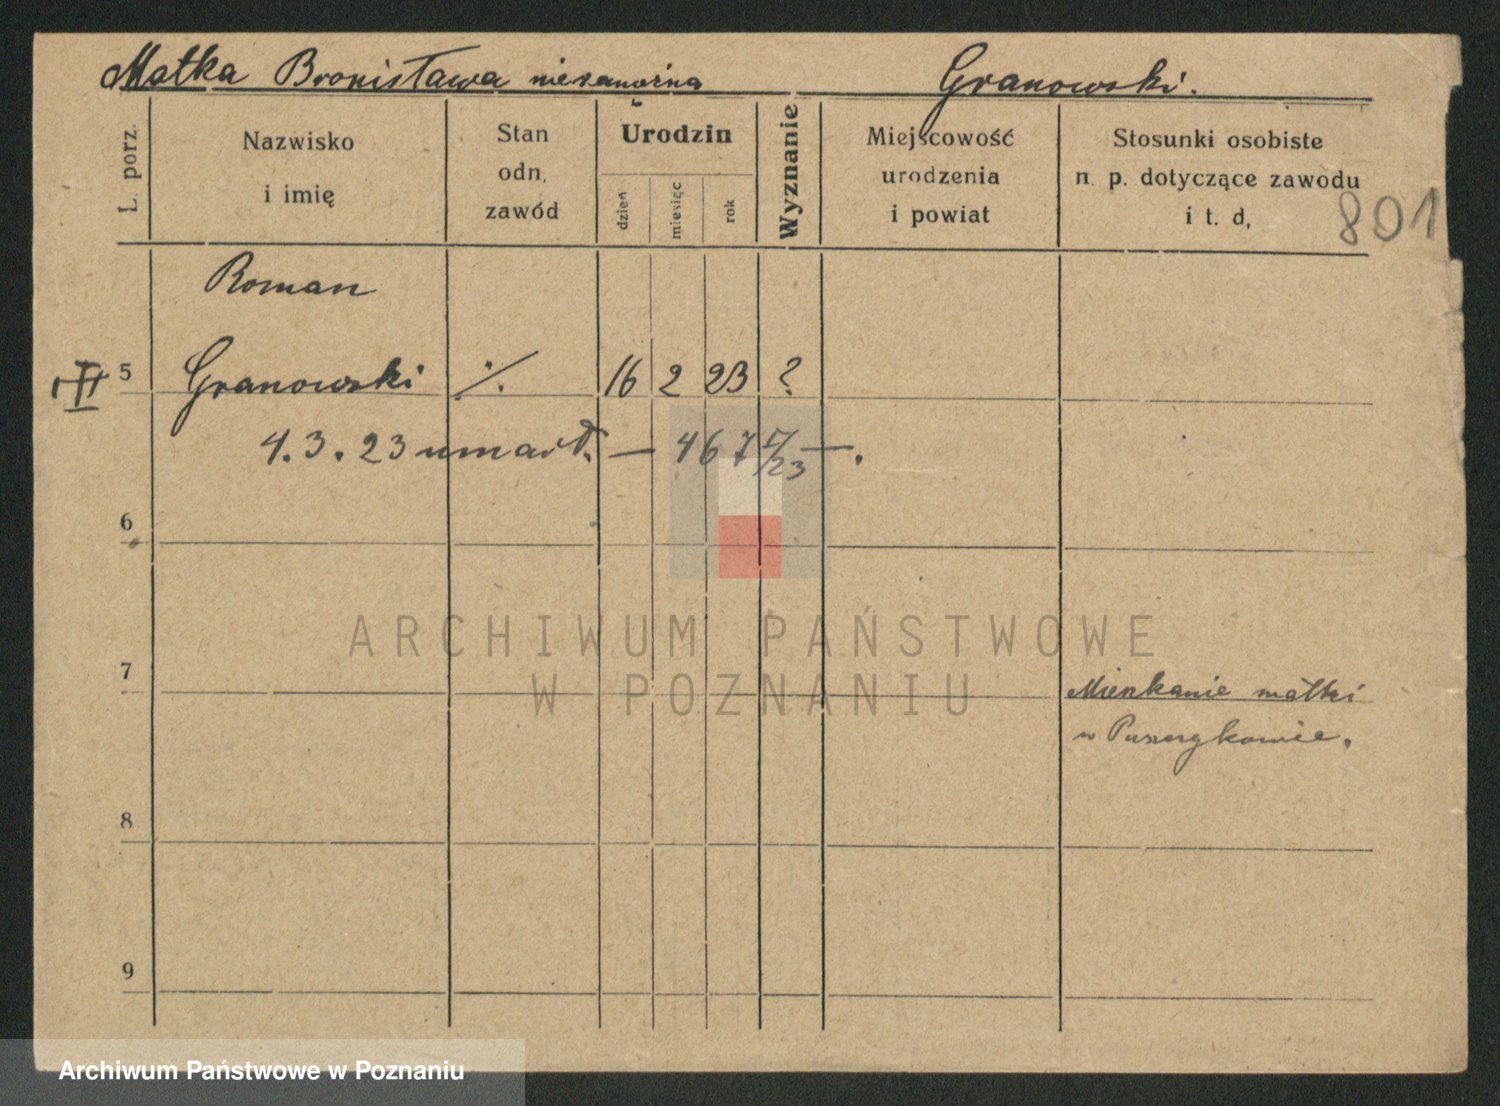 Matka Bronisława niezamożna Granowski.
L. porz.
Nazwisko
i imię
Stan
odn.
zawód
Urodzin
dzień
miesiąc
rok
Wyznanie
Miejscowość
urodzenia
i powiat
Stosunki osobiste
n. p. dotyczące zawodu
i t. d,
801
Roman
5 Granowski ·/. 16 2 23 ?
4.3.23 umarł. — 467 /23 —.
6
7
Mieszkanie matki
w Puszczykowie.
8
9
ARCHIWUM PAŃSTWOWE
W POZNANIU
Archiwum Państwowe w Poznaniu